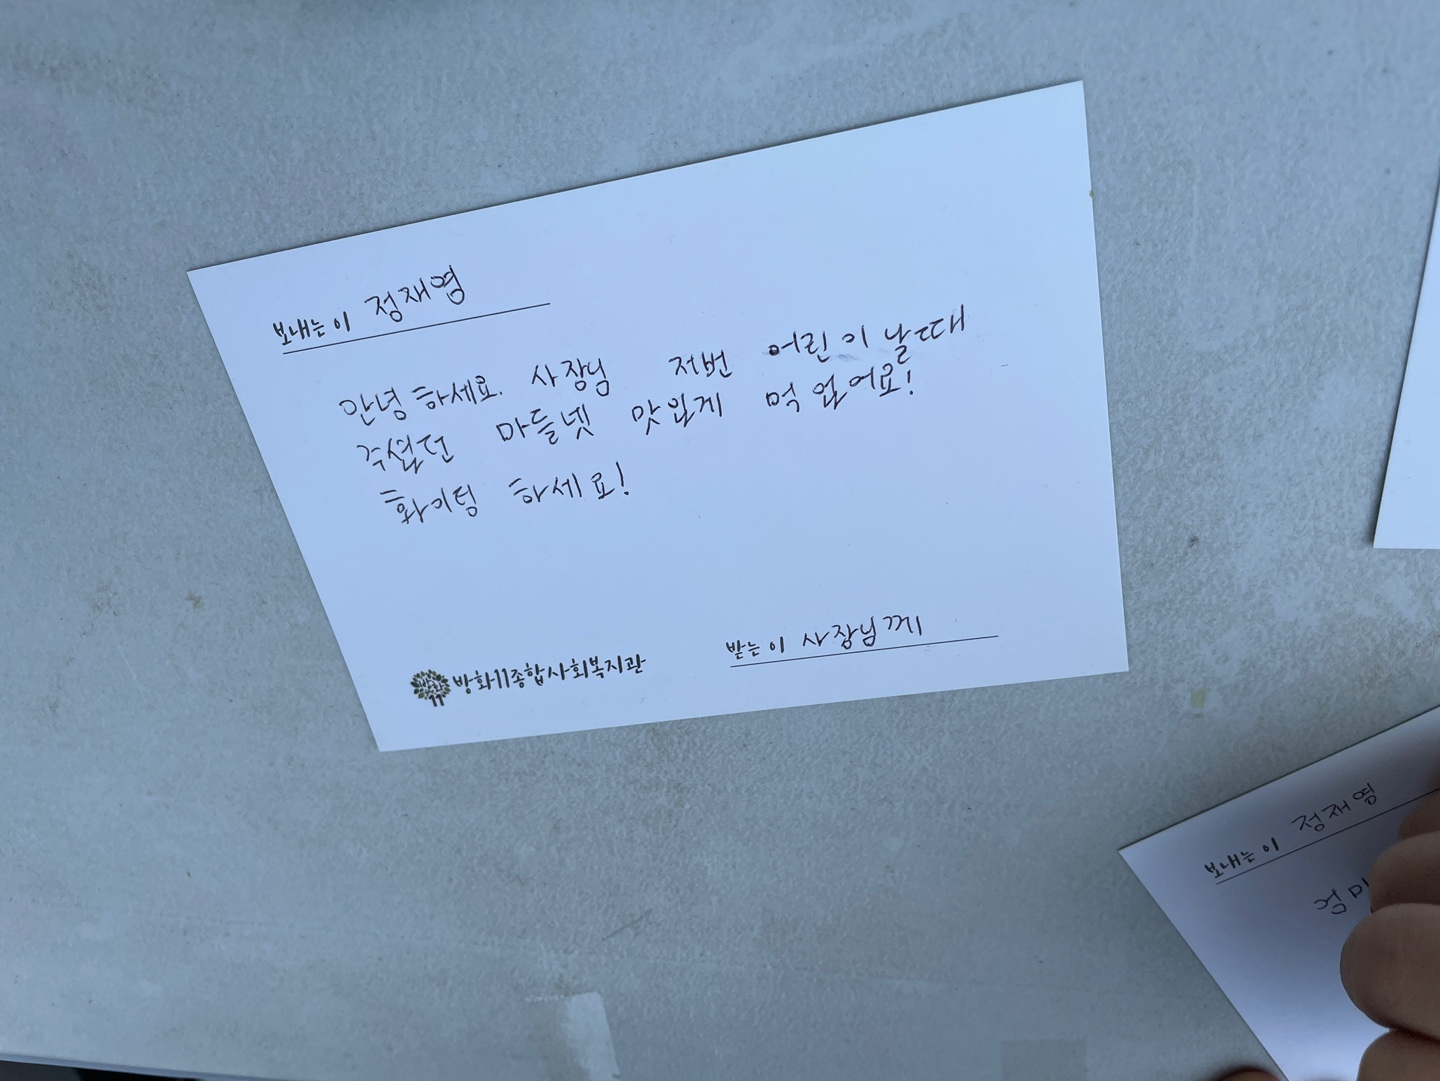 보내는 이 정재영
안녕 하세요. 사장님 저번 어린이 날때
주셨던 마들넷 맛있게 먹었어요!
화이팅 하세요!
방화11종합사회복지관
받는 이 사장님께
보내는 이 정재영